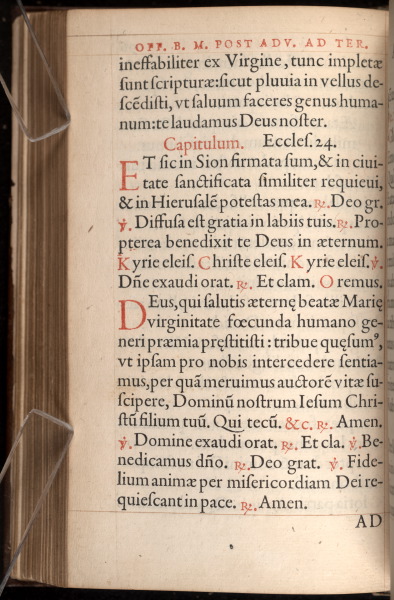 OFF. B. M. POST ADV. AD TER.
ineffabiliter ex Virgine, tunc impletæ
sunt scripturæ: sicut pluuia in vellus de-
scēdisti, vt saluum faceres genus huma-
num: te laudamus Deus noster.
Capitulum. Eccles. 24.
ET sic in Sion firmata sum, & in ciui-
tate sanctificata similiter requieui,
& in Hierusalē potestas mea. ℟. Deo gr.
℣. Diffusa est gratia in labiis tuis. ℟. Pro-
pterea benedixit te Deus in æternum.
Kyrie eleis. Christe eleis. Kyrie eleis. ℣.
Dñe exaudi orat. ℟. Et clam. Oremus.
DEus, qui salutis æternę beatæ Marię
virginitate fœcunda humano ge-
neri præmia pręstitisti: tribue quęsumꝰ,
vt ipsam pro nobis intercedere sentia-
mus, per quā meruimus auctorē vitæ su-
scipere, Dominū nostrum Iesum Chri-
stū filium tuū. Qui tecū. &c. ℟. Amen.
℣. Domine exaudi orat. ℟. Et cla. ℣. Be-
nedicamus dño. ℟. Deo grat. ℣. Fide-
lium animæ per misericordiam Dei re-
quiescant in pace. ℟. Amen.
AD